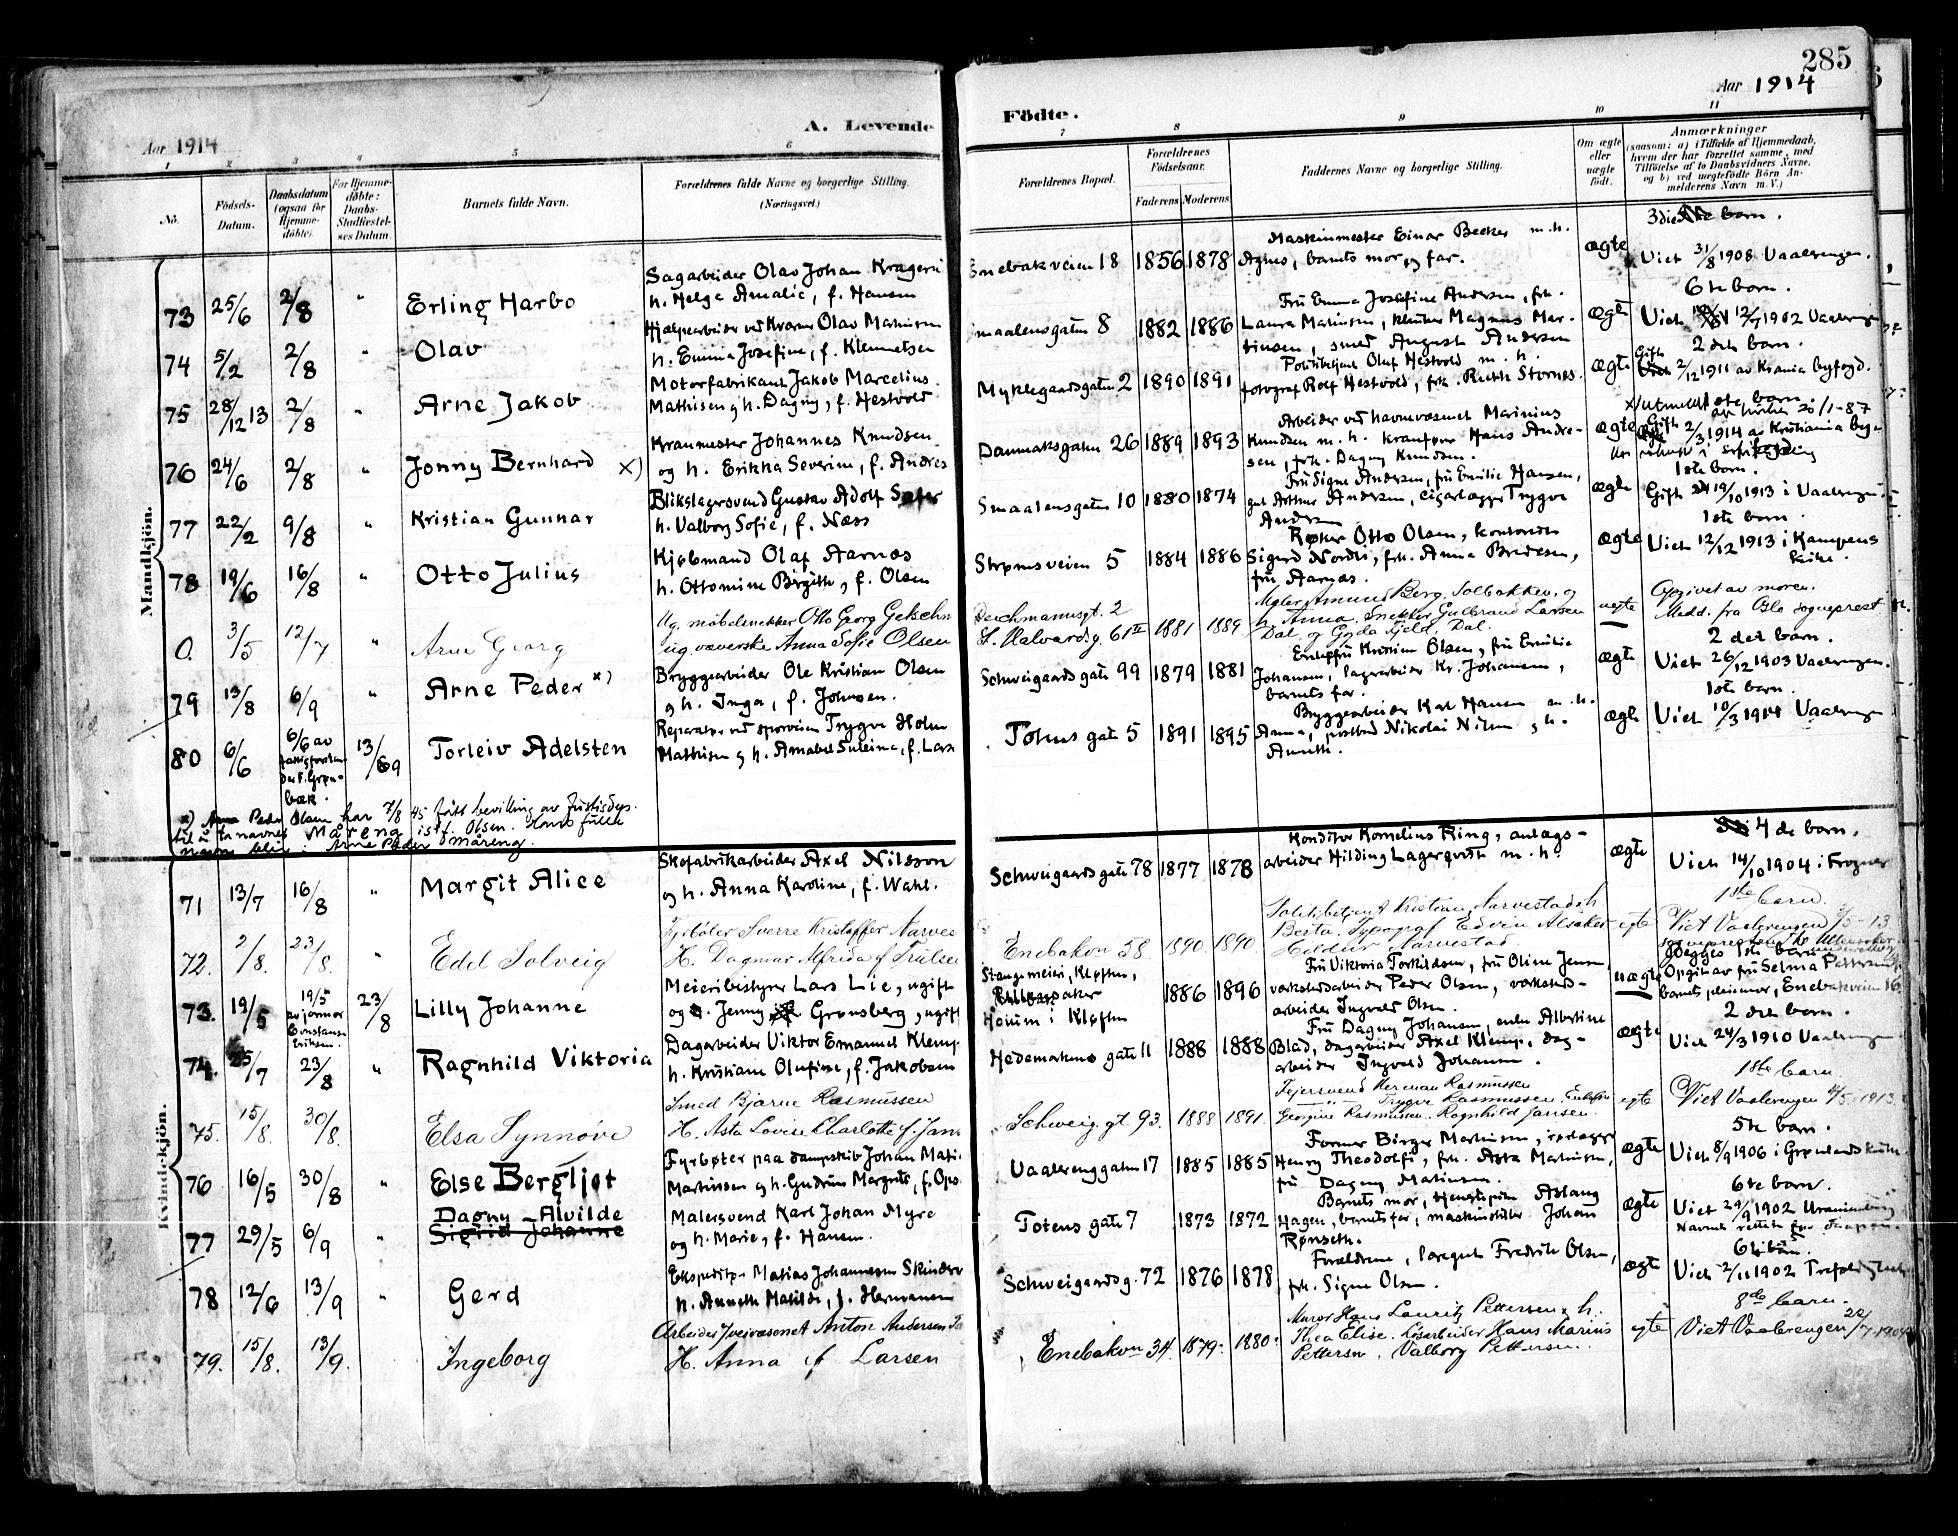 285
Aar 1914
Aar 1914
A. Levende
Födte.
1 2 3 4 5 6
7 8 9 10 11
No.
Födsels-Datum.
Daabsdatum (ogsaa for Hjemme-döbte).
For Hjemme-döbte: Daabs-Stadfæstel-ses Datum.
Barnets fulde Navn.
Forældrenes fulde Navne og borgerlige Stilling. (Næringsvei.)
Forældrenes Bopæl.
Forældrenes Födselsaar.
Faderens Moderens
Faddernes Navne og borgerlige Stilling.
Om ægte eller uægte födt.
Anmærkninger
(saasom: a) i Tilfælde af Hjemmedaab,
hvem der har forrettet samme, med
Tilföielse af to Daabsvidners Navne,
og b) ved uægtefödte Börn An-
melderens Navn m. V.)
Mandkjön.
73 25/6 2/8 " Erling Harbo
Sagarbeider Olav Johan Kragerü
h. Helge Amalie, f. Hansen
Enebakveien 18 1856 1878
Maskinmester Einar Becker m. h.
Agnes, barnets mor og far.
ægte
3die barn.
Viet 31/8 1908 Vaalerengen.
74 5/2 2/8 " Olav
Hjælpearbeider ved Kværner Olav Martinsen
h. Emma Josefine, f. Klemetsen
Smaalensgaten 8 1882 1886
Fru Emma Josefine Andersen, frk.
Laura Martinsen, Magnus Mar-
tinsen, smed August Andersen
ægte
6te barn.
Viet 12/7 1902 Vaalerengen
75 28/12 13 2/8 " Arne Jakob
Motorfabrikant Jakob Marcelius
Mathisen og h. Dagny, f. Hestvold
Myklegaardsgaten 2 1890 1891
Politibetjent Oluf Hestvold m. h.
fotograf Rolf Hestvold, frk. Ruth Stornes.
ægte
2det barn.
Gift 2/12 1911 av Krania byfogd.
76 24/6 2/8 " Jonny Bernhard x)
Kranmester Johannes Knudsen
og h. Erikka Severine, f. Andres
Danmarksgaten 26 1889 1893
Arbeider ved havnevæsenet Marinius
Knudsen m. h. kranfører Hans Andre-
sen, frk. Dagny Knudsen.
ægte
x) utmeldt av kirken 20/1-87
1ste barn.
Gift 2/3 1914 av Kristiania by-
77 22/2 9/8 " Kristian Gunnar
Blikslagersvend Gustav Adolf Sæter
h. Valborg Sofie, f. Næss
Smaalensgaten 10 1880 1874
Fru Signe Andersen, fru Emilie Hansen,
gut Arthur Andersen, cigarlægger Trygve
Andersen
ægte
1ste barn.
Gift 19/10 1913 i Vaalerengen.
78 19/6 16/8 " Otto Julius
Kjøbmand Olaf Aarnæs
h. Ottomine Birgithe, f. Olsen
Strømsveien 5 1884 1886
Røker Otto Olsen, kontorist
Sigurd Nordli, frk. Anna Bredesen,
fru Aarnæs.
ægte
1ste barn.
Viet 12/12 1913 i Kampens
kirke.
0. 3/5 12/7 " Arne Georg
Ug. møbelsnekker Otto Georg
ug. væverske Anna Sofie Olsen
Deichmannsgt. 2
St. Halvardsg. 61 II 1881 1889
Maler Amund Berg, Solbakken, og
h. Anna. Snekker Gulbrand Larsen
Dal, og Gyda Fjeld, Dal.
uegte
Opgivet av moren.
Medd. fra Oslo sogneprest
79 13/8 6/9 " Arne Peder x)
Bryggearbeider Ole Kristian Olsen
og h. Inga, f. Johnsen.
Schweigaardsgate 99 1879 1881
Enkefru Kristine Olsen, fru Emilie
Johansen, lagerarbeider Kr. Johansen,
barnets far.
ægte
2det barn.
Viet 26/12 1903 Vaalerengen.
80 6/6 6/6 av Grøn-
bæk. 13/9
Torleiv Adelsten
Reparatør ved sporveien Trygve Holm
Mathisen og h. Amabel Suleima, f. Lars
Totens gate 5 1891 1895
Bryggearbeider Karl Hansen m. h.
Anna, postbud Nikolai Nilsen og h.
Anneth.
ægte
1ste barn.
Viet 10/3 1914 Vaalerengen
x) Arne Peder Olsen har 7/8 45 fått bevilling av Justisdep.
til å ta navnet Måreng istf. Olsen. Hans fulle
navn blir: Arne Peder Måreng.
Kvindekjön.
71 13/7 16/8 " Margit Alice
Skofabrikarbeider Axel Nilsson
og h. Anna Karoline, f. Wahl.
Schweigaardsgate 78 1877 1878
Konditor Kornelius Ring, anlægs-
arbeider Hilding Lagerqvist m. h.
ægte
4de barn.
Viet 14/10 1904 i Frogner
72. 2/8. 23/8. " Edel Solveig
Fyrbøter Sverre Kristoffer Narves
H. Dagmar Alfrida f. Trulsen
Enebakvn 58. 1890. 1890.
Politibetjent Kristian Narvestad & h
Berta. Typograf Edvin Alsaker
Hildur Narvestad.
egte
1ste barn.
Viet Vaalerengen 5-13
73. 19/5 19/5 av jormor Constanse Eriksen. 23/8
Lilly Johanne
Meieribestyrer Lars Lie, ugift
og Jenny Grønsberg, ugift
Stange meieri, Kløften,
Houm i Kløften
1886 1896
Fru Viktoria Torkildsen, fru Oline Jensen,
verkstedsarbeider Peder Olsen, verksteds-
arbeider Ingvald Olsen.
uægte
Begges 1ste barn
Opgit av fru Selma Pettersen,
barnets pleiemor, Enebakveien 16.
74. 25/7 23/8 " Ragnhild Viktoria
Dagarbeider Viktor Emanuel Klemp
h. Kristiane Olufine, f. Jakobsen
Hedemarkens gate 11 1888 1888
Fru Dagny Johansen, enke Albertine
Blad, dagarbeider Axel Klemp, dag-
arbeider Ingvald Johansen.
ægte
2det barn.
Viet 24/3 1910 Vaalerengen
75. 15/8. 30/8. Elsa Synnøve
Smed Bjarne Rasmussen
H. Asta Lovise Charlotte f. Jans
Schweig. gt. 93. 1888 1891.
Fejersvend Herman Rasmussen
Trygve Rasmussen.
Georgine Rasmussen. Ragnhild Jansen.
egte
1ste barn.
Viet Vaalerengen /5 1913.
76 16/5 30/8 " Else Bergljot
Fyrbøter paa dampskib Johan Mati
Martinsen og h. Gudrun Margrete, f. Ops
Vaalerenggaten 17 1885 1885
Former Birger Martinsen, rørlægger
Henry Theodolfi, frk. Asta Martinsen,
fru Dagny Martinsen.
ægte
5te barn.
Viet 8/9 1906 i Grønlands kirke.
77 29/5 6/9 " Dagny Alvilde
Sigrid Johanne
Malersvend Karl Johan Myre
og h. Marie, f. Hansen.
Totens gate 7 1873 1872
Barnets mor, Aslaug
Hagen, barnets far, maskinstiller Johan
Rønseth.
ægte
6te barn.
Viet 29/9 1902 Uranienborg
Navnet rettet før
78 12/6 13/9 " Gerd
Ekspeditør Matias Johannesen Skinderv
h. Anneth Matilde, f. Hermansen
Schweigaardsg. 72 1876 1878
Forældrene, Fredrik Olsen,
frk. Signe Olsen.
ægte
6te barn.
Viet 2/11 1902 Trefoldighets
79. 15/8. 13/9. Ingeborg
Arbeider i veivæsenet Anton Andersen
H. Anna f. Larsen
Enebakvn 34. 1879. 1880.
Murer Hans Lauritz Pettersen & h.
Thea Elise. Løsarbeider Hans Marius
Pettersen. Valborg Pettersen.
egte
8de barn.
Viet Vaalerengen 22/7 1904